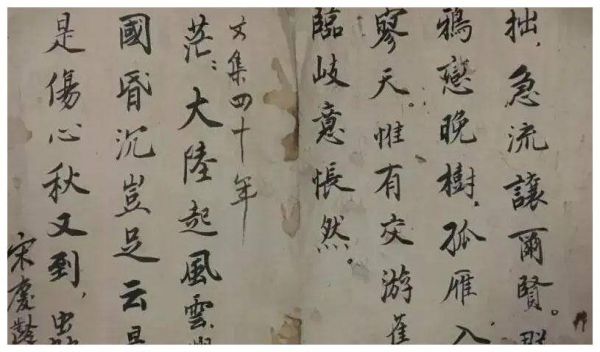 拙，急流讓爾賢。
鴉戀晚樹，孤雁入
寥天。惟有交游
臨岐意悵然。
文集四十年
茫〻大陸起風雲
國昏沉豈足云
是傷心秋又到，
宋慶齡